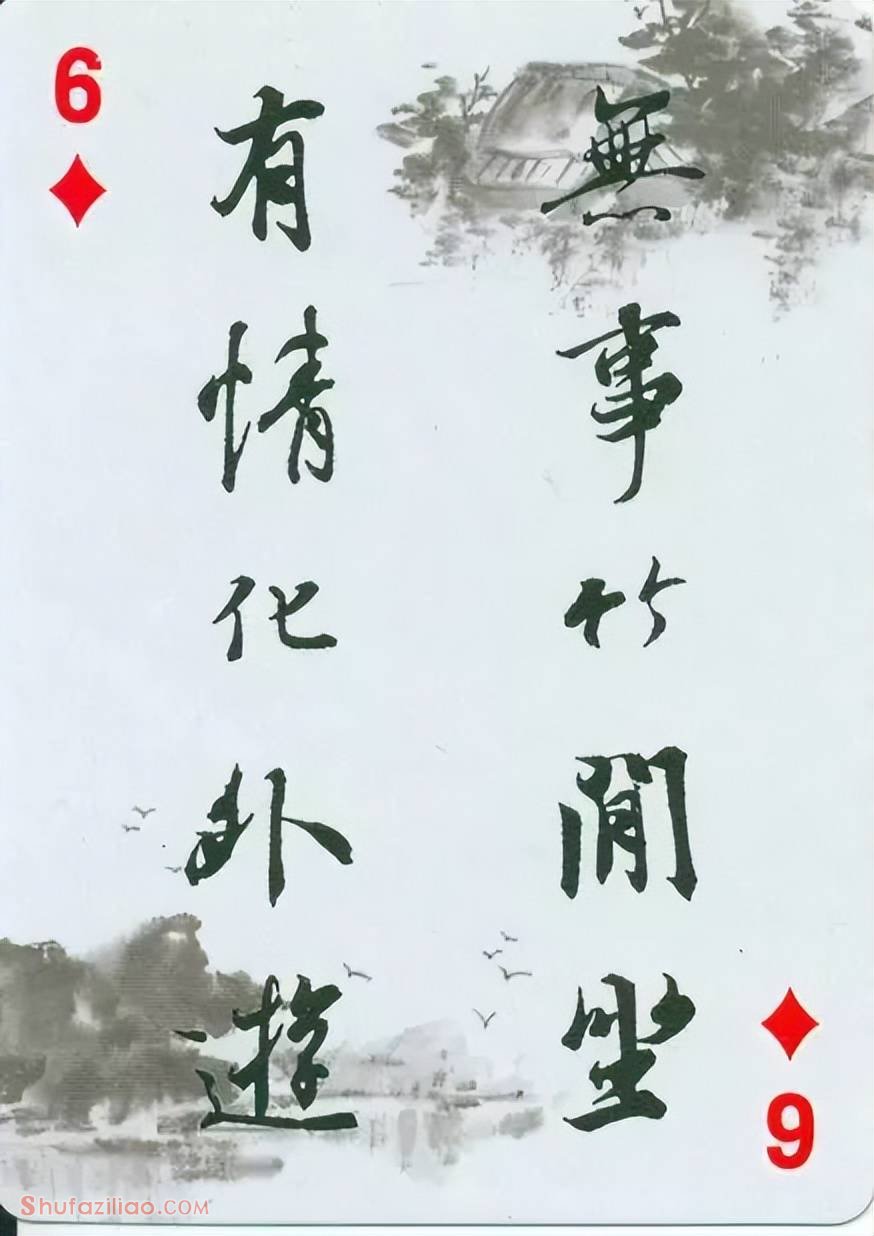 6
無事竹閒坐
有情化外遊
6
Shufaziliao.COM